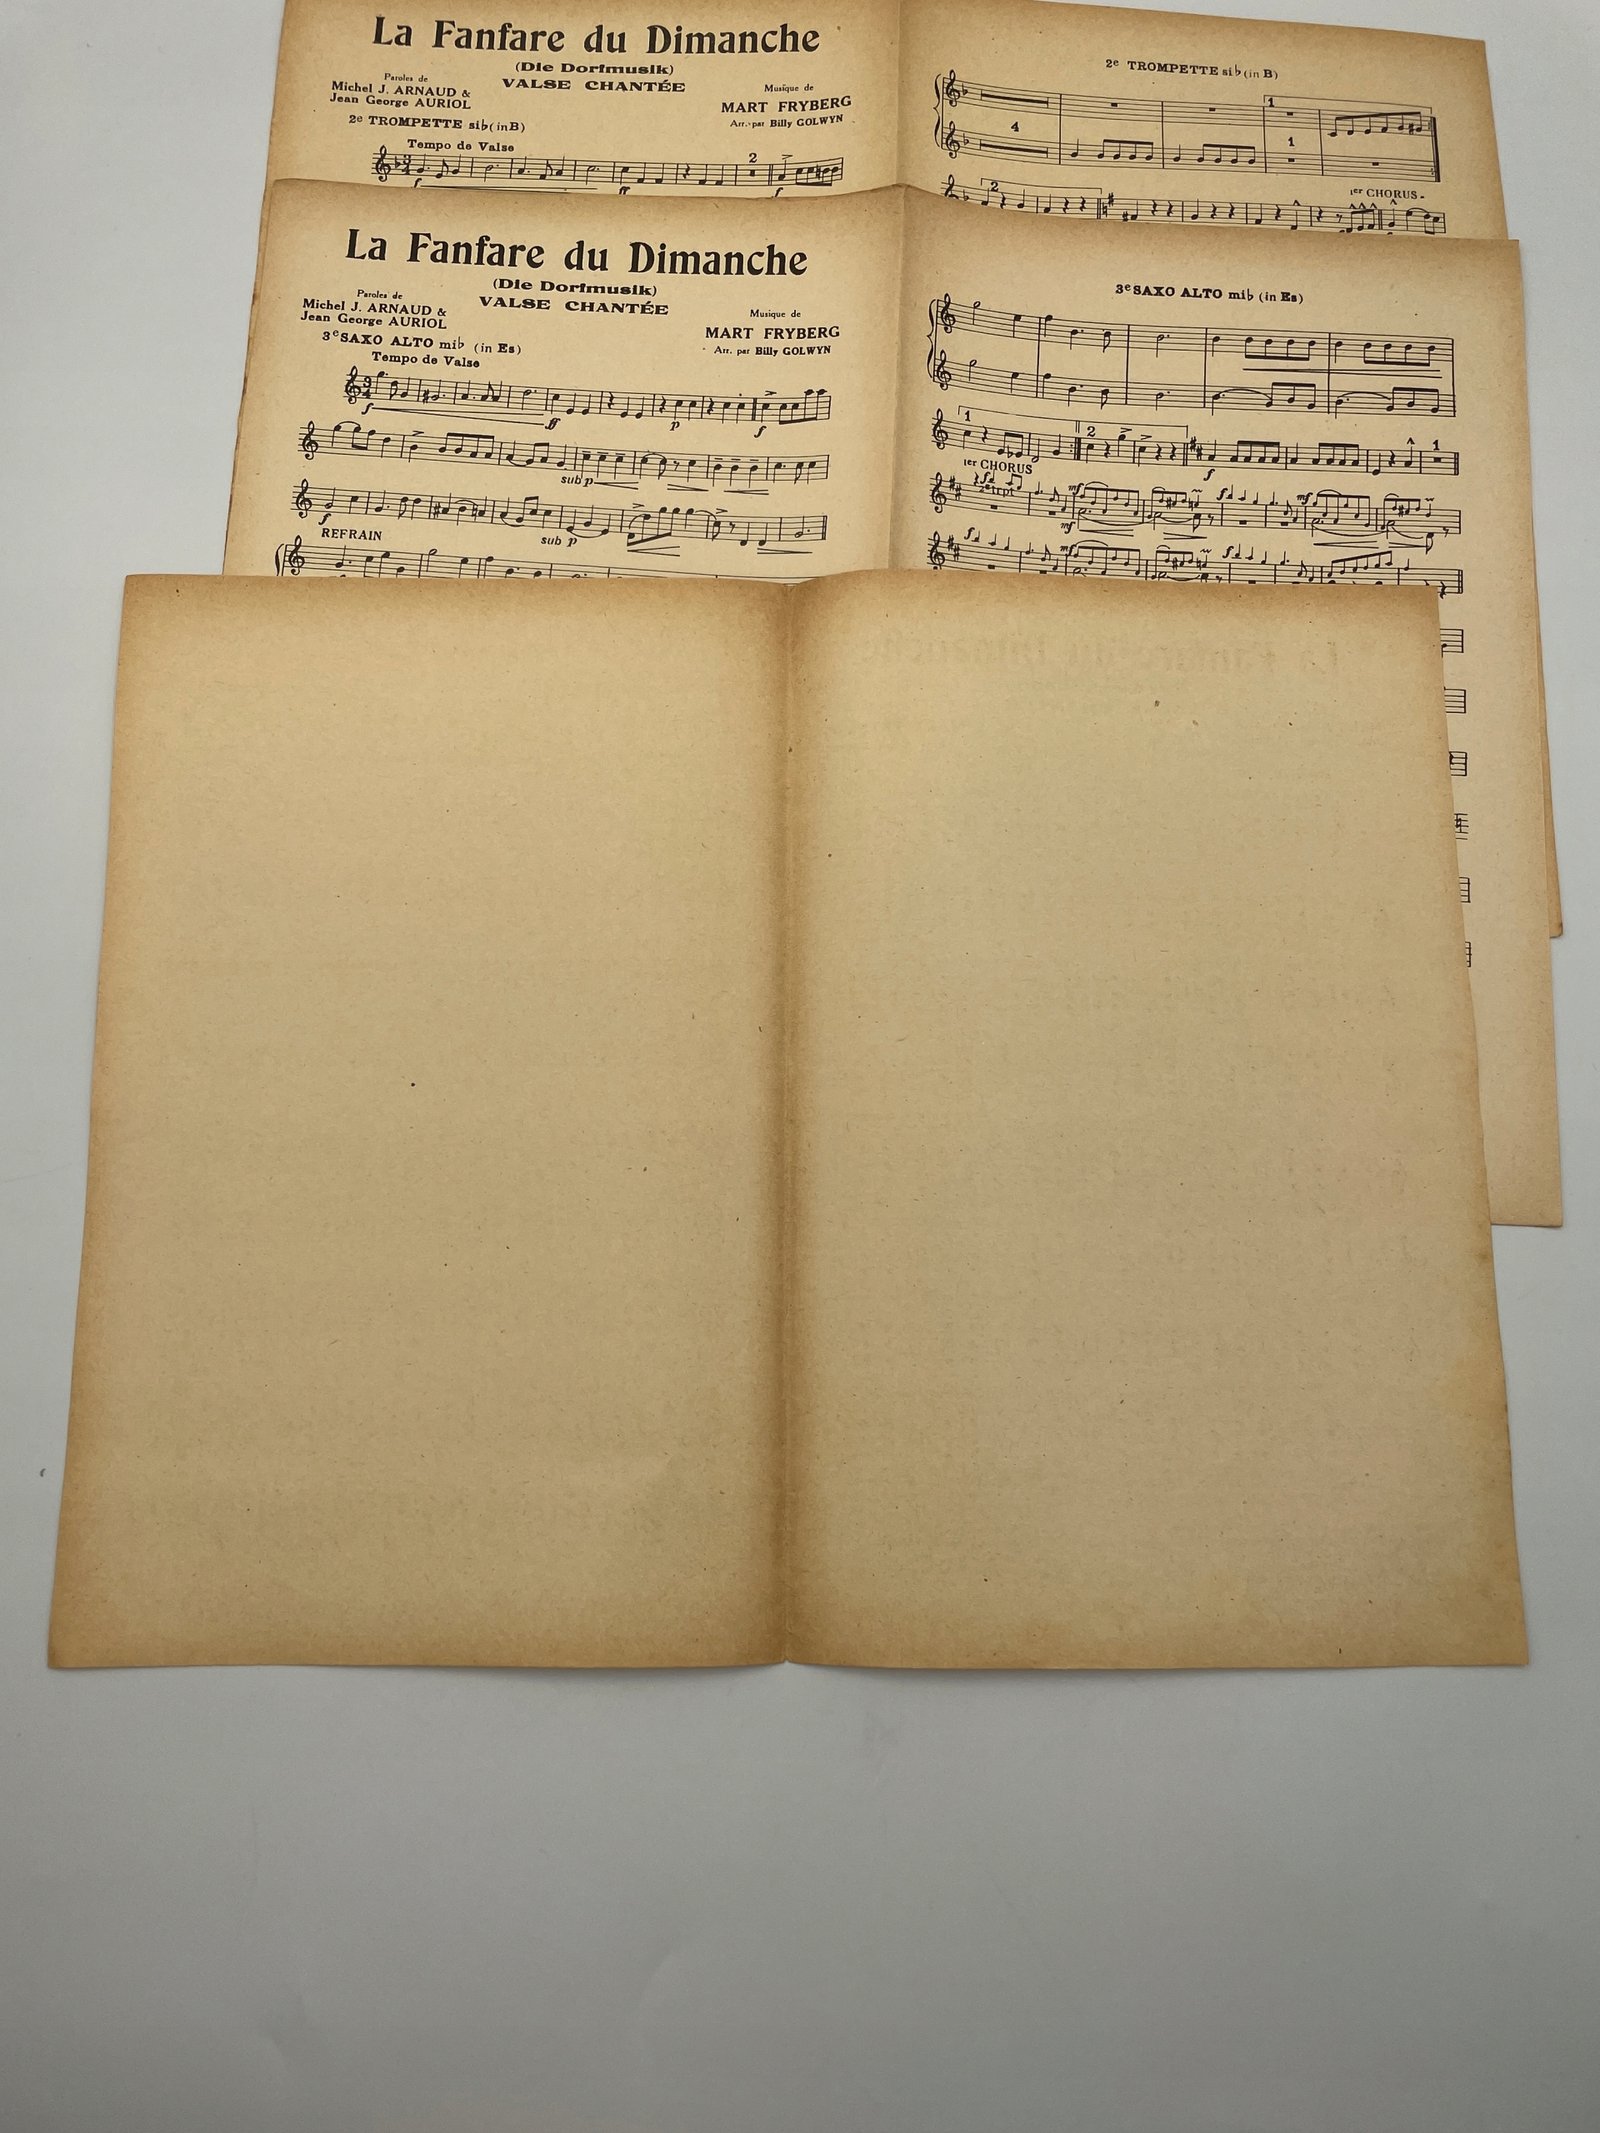 La Fanfare du Dimanche
(Die Dorfmusik)
VALSE CHANTÉE
Paroles de
Michel J. ARNAUD &
Jean George AURIOL
Musique de
MART FRYBERG
Arr. par Billy GOLWYN
2e TROMPETTE si♭ (in B)
Tempo de Valse
2
f
ff
f
2e TROMPETTE si♭ (in B)
4
1
1
2
1er CHORUS
La Fanfare du Dimanche
(Die Dorfmusik)
VALSE CHANTÉE
Paroles de
Michel J. ARNAUD &
Jean George AURIOL
Musique de
MART FRYBERG
Arr. par Billy GOLWYN
3e SAXO ALTO mi♭ (in Es)
Tempo de Valse
3
4
f
ff
p
f
sub p
f
sub p
REFRAIN
3e SAXO ALTO mi♭ (in Es)
1
2
1
f
1er CHORUS
mf
f
mf
mf
f
mf
f